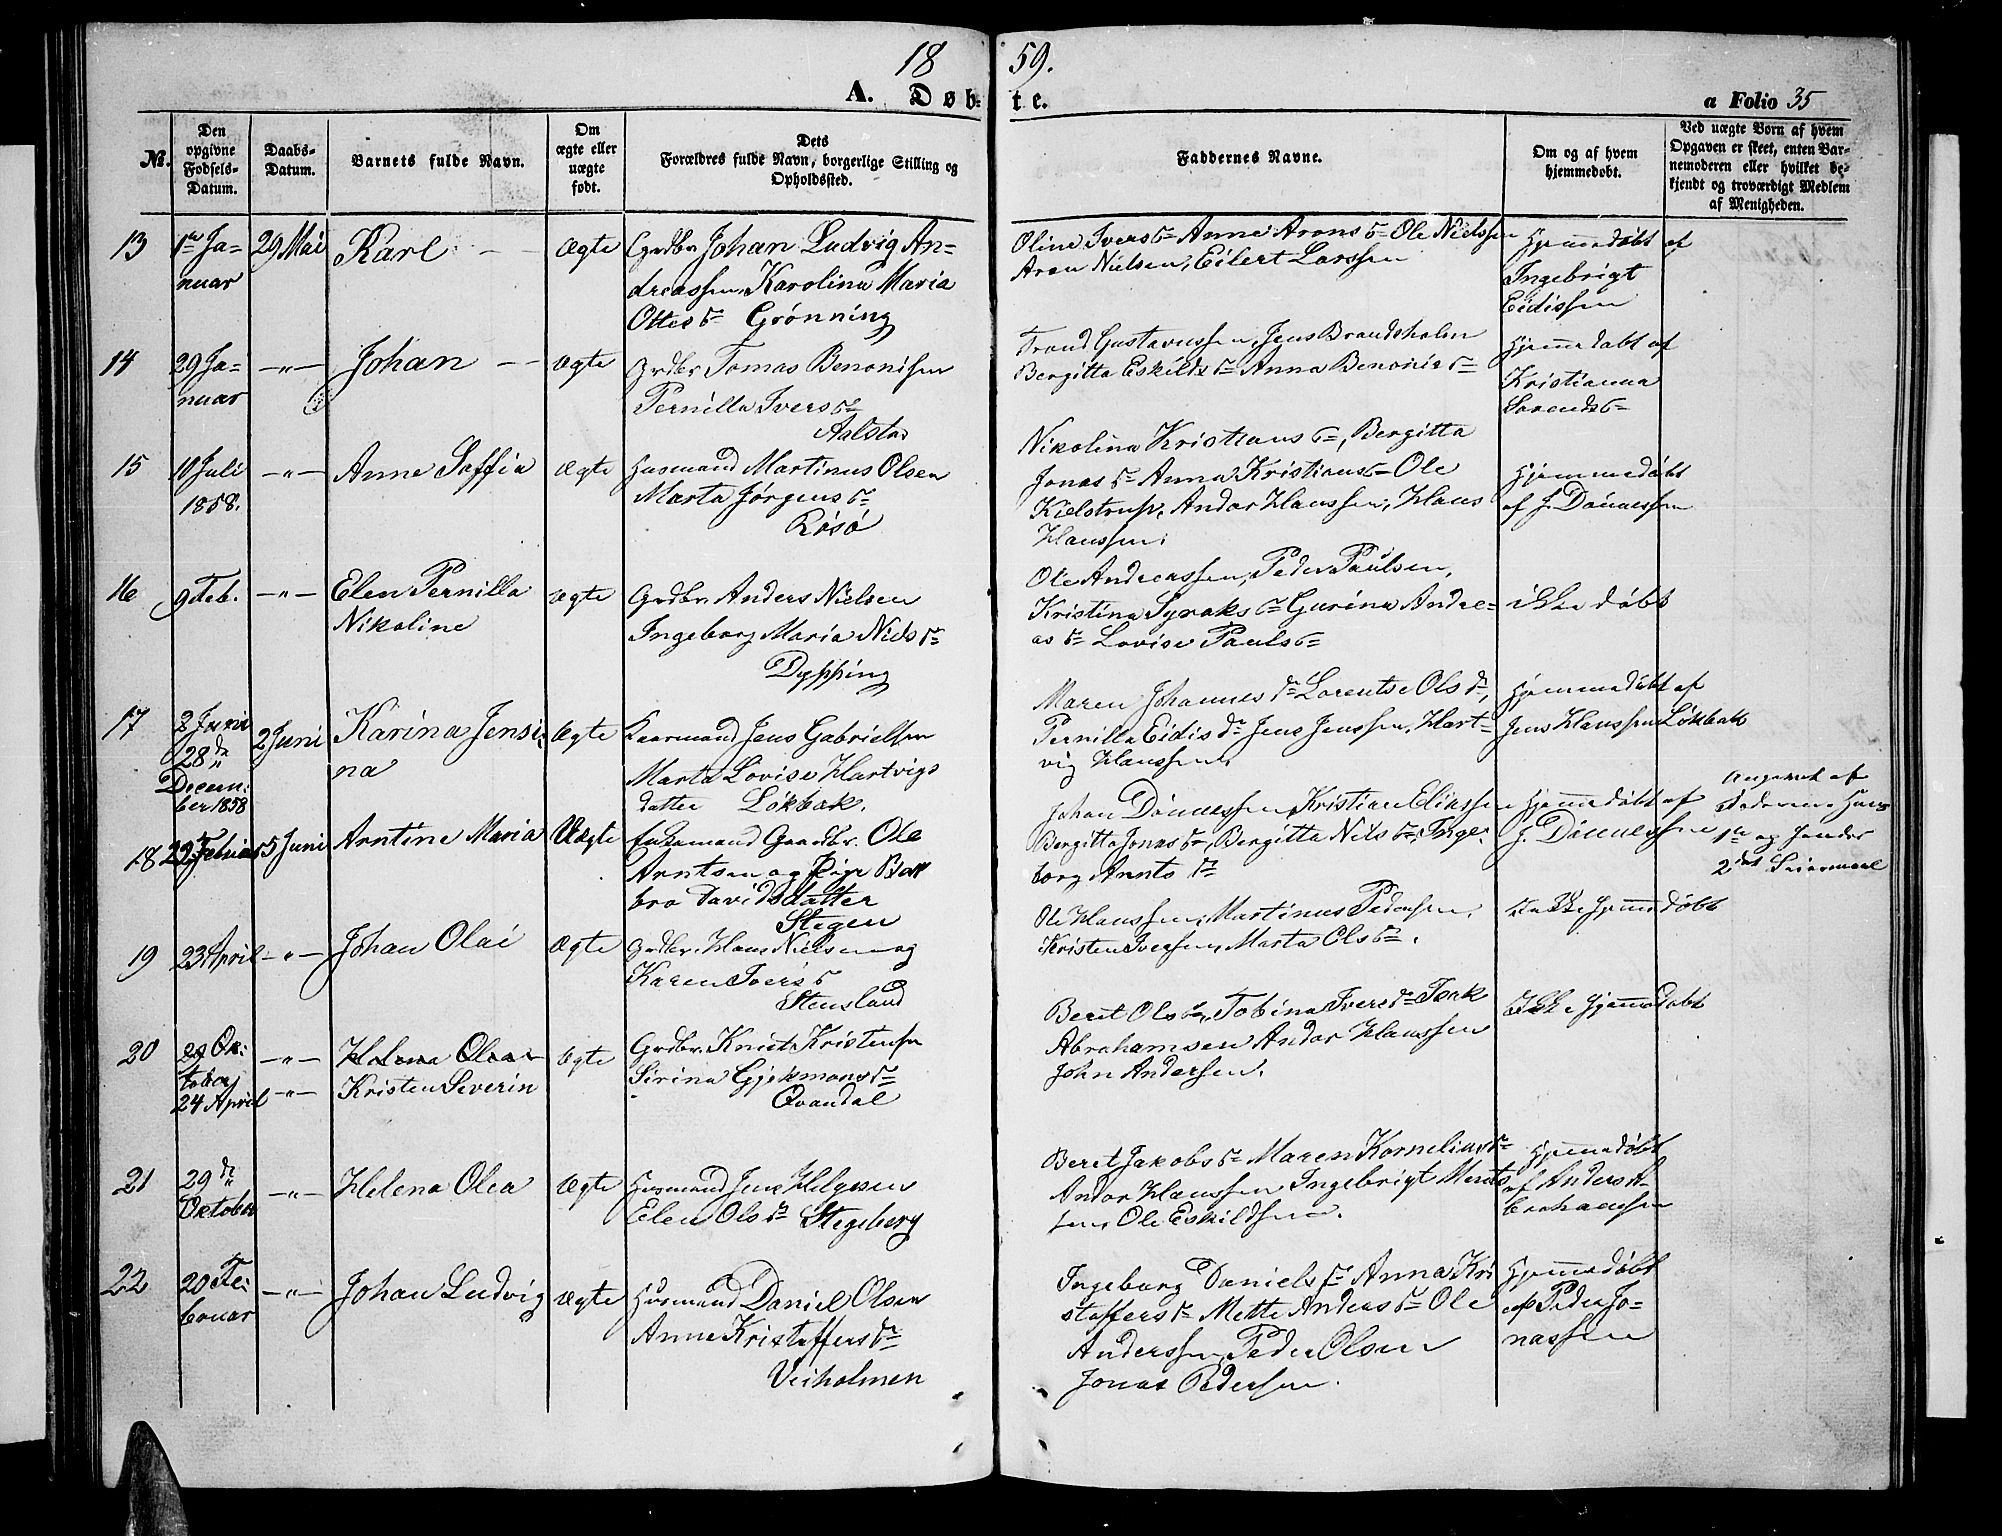 18 59.
A. Døbte.
a Folio 35
No.
Den opgivne Fødsels-Datum.
Daabs-Datum.
Barnets fulde Navn.
Om ægte eller uægte født.
Dets Forældres fulde Navn, borgerlige Stilling og Opholdssted.
Faddernes Navne.
Om og af hvem hjemmedøbt.
Ved uægte Børn af hvem Opgaven er skeet, enten Barnemoderen eller hvilket bekjendt og troværdigt Medlem af Menigheden.
13 1te Ja- 29 Mai Karl - - Ægte Grdbr Johan Ludvig An-
nuar dreassen, Karolina Maria
Ottes D Grønning
Oline Ivers D Anne Arons D Ole Nielssen
Aron Nielsen, Eilert Larssen
Hjemmedøbt af
Ingebrigt
Eidissen
14 29 Ja- -"- Johan - - Ægte Grdbr Tomas Benonisen
nuar Pernilla Ivers D
Aalstad
Trond Gustavussen, Jens Brandsholm
Bergitta Eskilds D Anna Benonis D
Hjemmedøbt af
Kristianna
Sorends D
15 10 Juli -"- Anne Soffia Ægte Husmand Martinus Olsen
1858. Marta Jørgens D
Røsø
Nikolina Kristians D, Bergitta
Jonas D Anna Kristians D Ole
Kielstrup, Andor Hanssen, Hans
Hanssen.
Hjemmedøbt
af J. Dønnessen
16 9 Feb. -"- Elen Pernilla ægte Grdbr. Anders Nielsen
Nikoline Ingeborg Maria Niels D
Dypping
Ole Andreassen, Peder Paulsen,
Kristina Syraks D Gurina Andre-
as D Lovise Pauls D
ikke døbt
17 28de 2 Juni Karina Jensi- Ægte Kaarmand Jens Gabrielsen
Decem- na Marta Lovise Hartvigs
ber 1858 datter Løkbak.
Maren Johannes Dr Lorentse Ols Dr,
Pernilla Eidis Dr Jens Jenssen, Hart-
vig Hanssen.
Hjemmedøbt af
Jens Hanssen Løkbak
18 22 Februar 5 Juni Arntine Maria Uægte Enkemand Gaardbr. Ole
Arntsen og Pige Bol
bro Davidsdatter
Stegen
Johan Dønnessen, Kristian Eliassen
Bergitta Jonas D, Bergitta Nils D, Inge-
borg Arnts D
Hjemmedøbt af
J. Dønnessen
Angivet af
Faderen Hans
1te og hendes
2det Leiermaal
19 23 April -"- Johan Olai Ægte Grdbr. Hans Nielsen og
Karen Ivers D
Stensland
Ole Hanssen, Martinus Pedersen,
Kristen Iversen, Marta Ols D.
ikke hjemmedøbt
20 29 Ok- -"- Helena Olea Ægte Grdbr. Knut Kristensen
tober
24 April -"- Kristen Severin Sirina Gjekmons D
Qvandal
Beret Ols D, Tobina Ivers D Isak
Abrahamsen Andor Hanssen
John Andersen.
Ikke hjemmedøbt
21 29de -"- Helena Olea Ægte Husmand Jens Helgesen
Oktober Elen Ols D Stegeberg
Beret Jakobs D Maren Kornelius D
Andor Hanssen Ingebrigt Ments
sen, Ole Eskildsen.
Hjemmedøbt
af Anders A-
brahamsen
22 20 Fe- -"- Johan Ludvig Ægte Husmand Daniel Olsen
bruar Anne Kristoffers D
Veiholmen
Ingeborg Daniels D Anna Kri
stoffers D Mette Anders D Ole
Anderssen, Peder Olsen
Jonas Pedersen.
Hjemmedøbt
af Peder Jo-
nassen